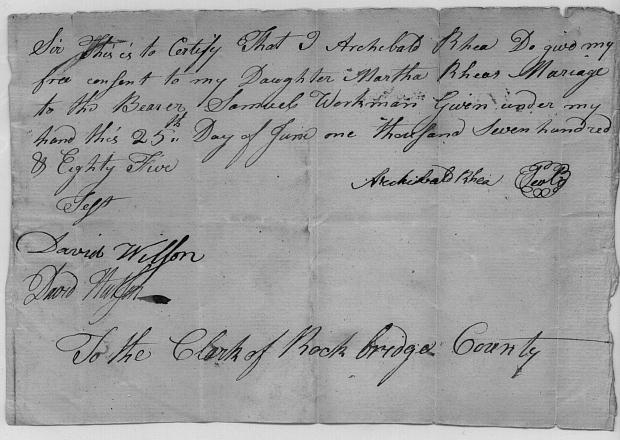 Sir This is to Certify That I Archibald Rhea Do give my
free consent to my Daughter Martha Rheas Mariage
to the Bearer Samuel Workman Given under my
hand this 25th Day of June one thousand Seven hundred
& Eighty Five
Archibald Rhea
Test
David Wilson
David
To the Clark of Rockbridge County